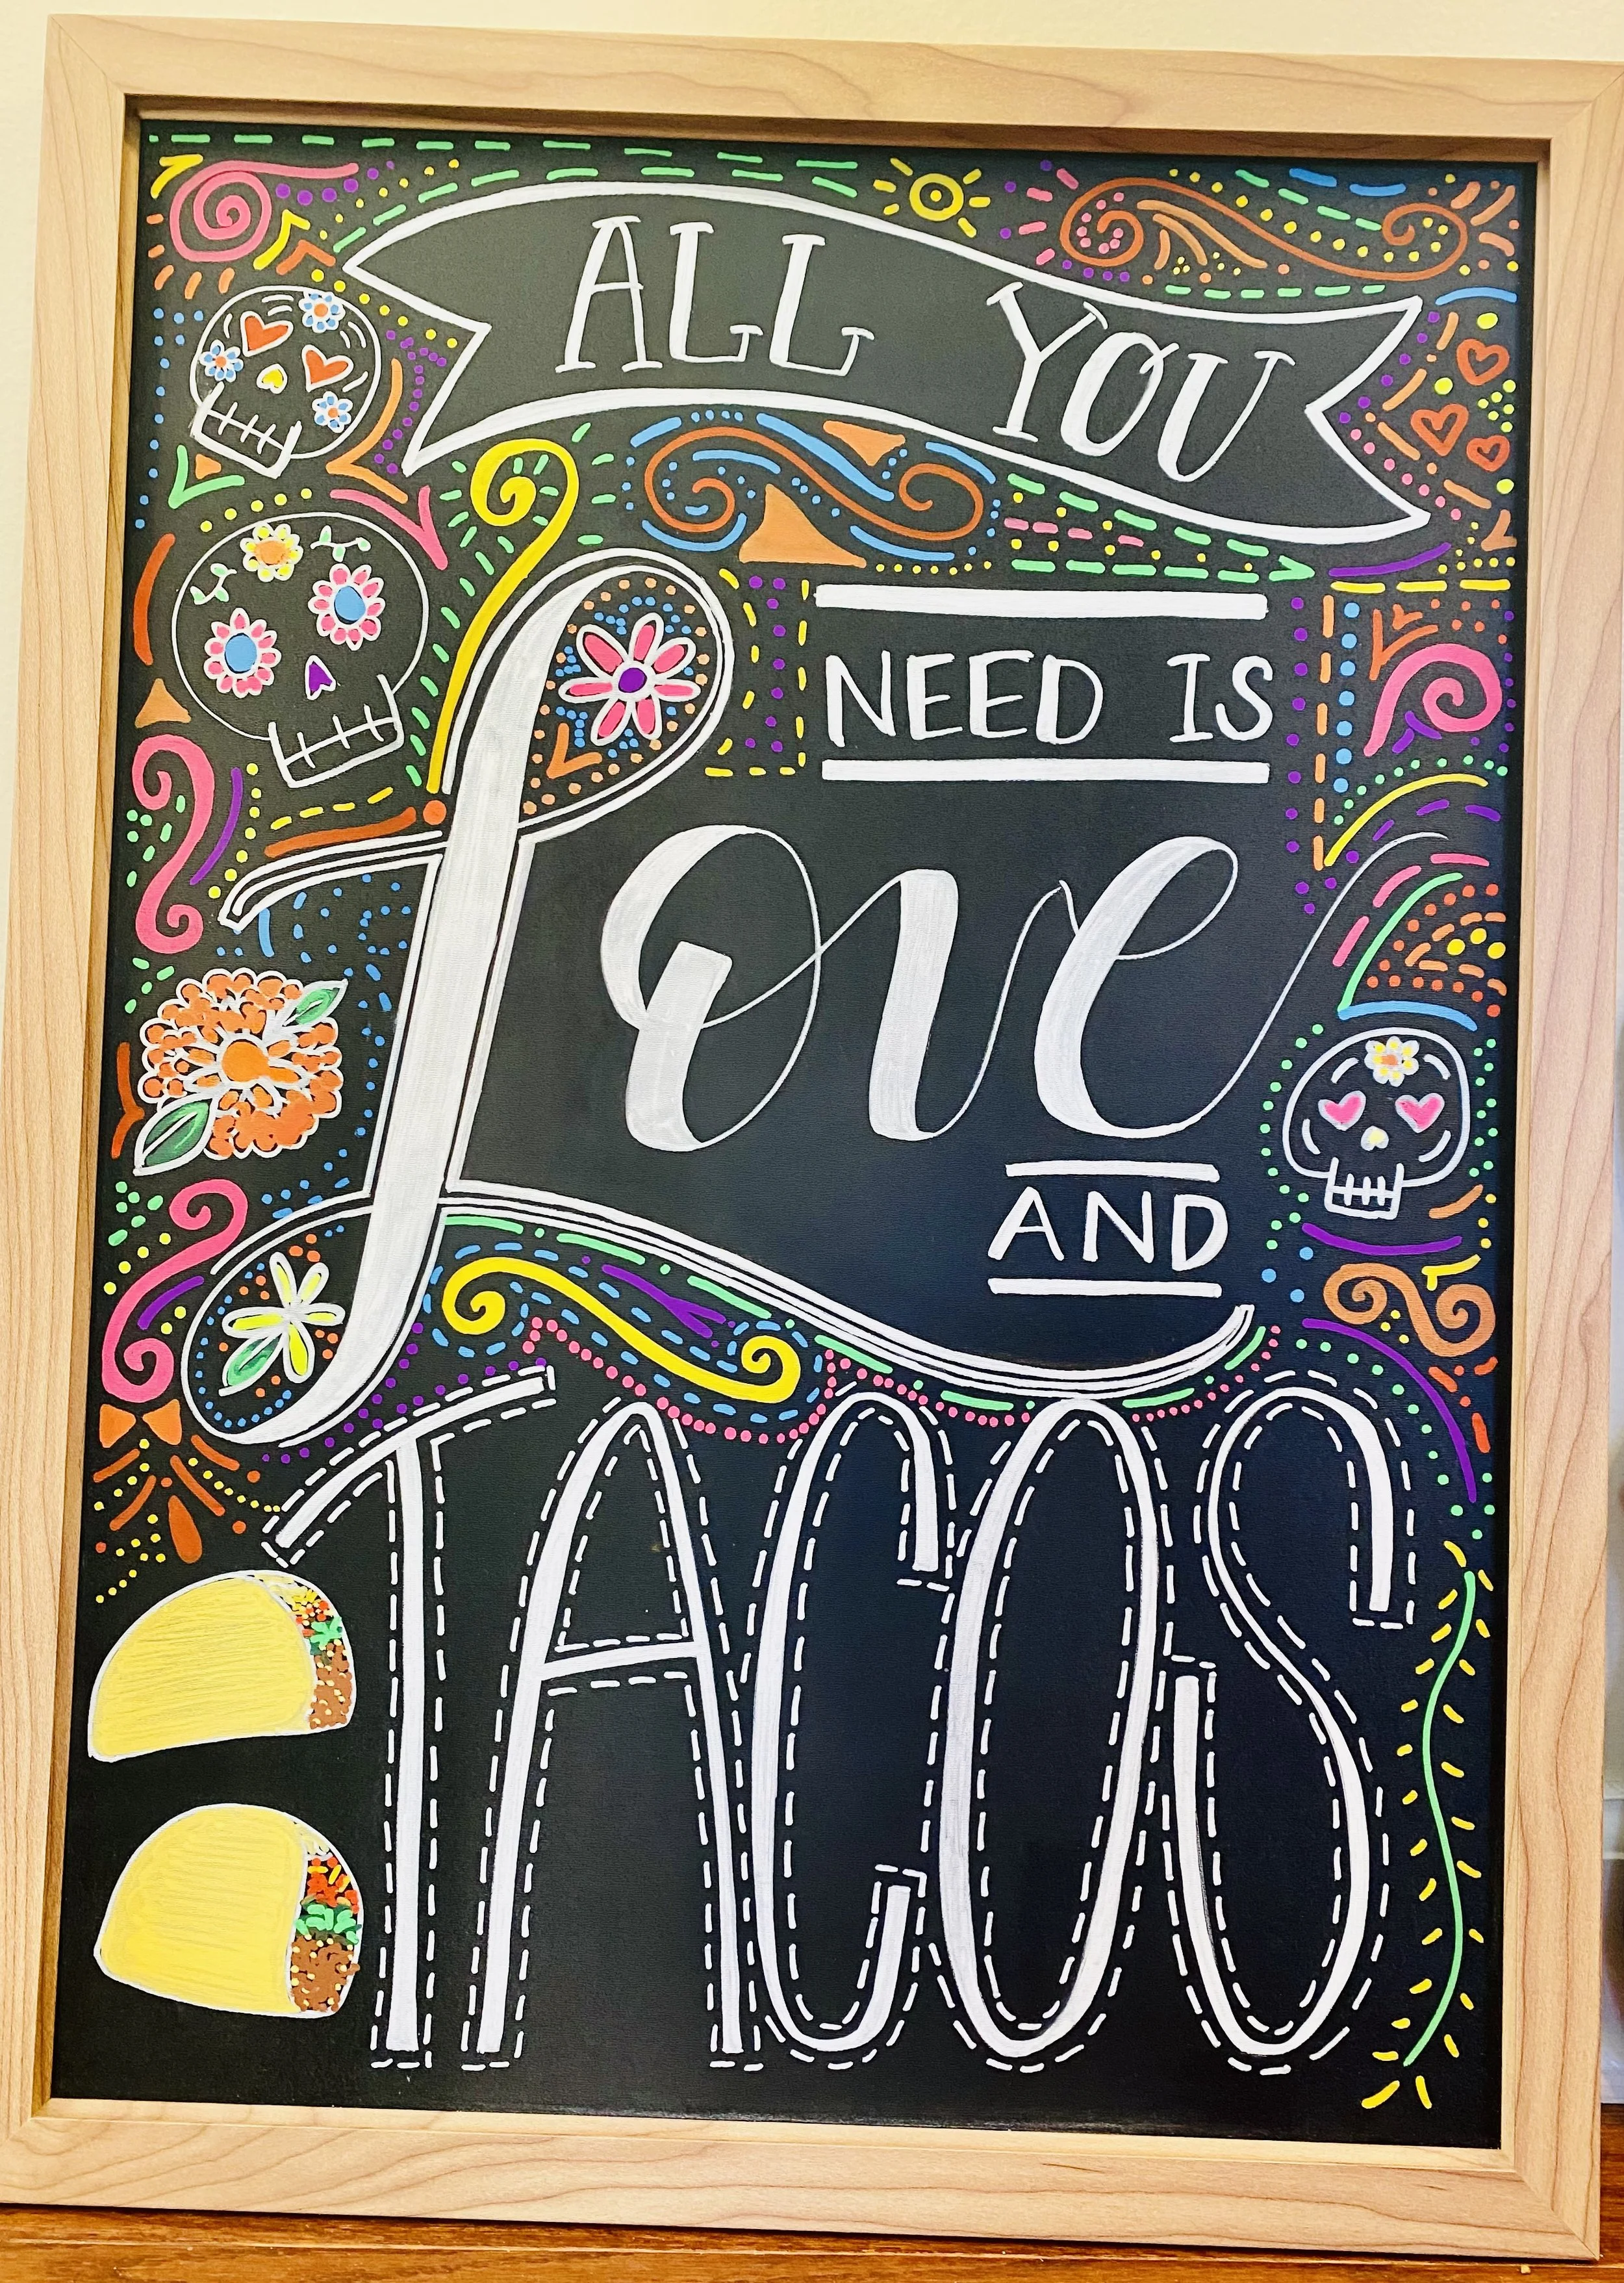 ALL YOU
NEED IS
Love
AND
TACOS